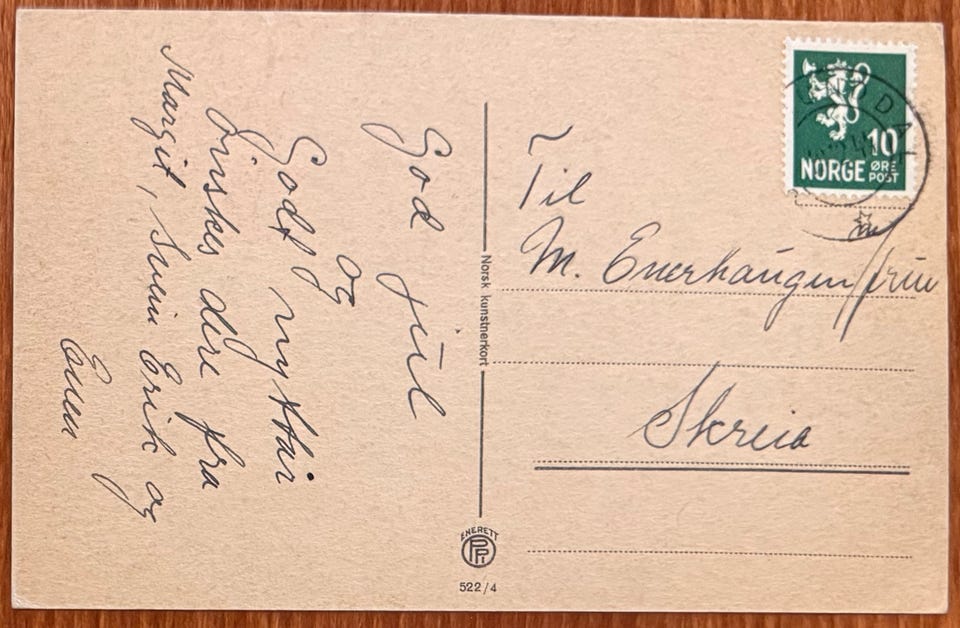 God jul
og
Godt nyttår
Ønskes dere fra
Margit, Svein Erik og
Even
Norsk kunstnerkort
ENERETT
522/4
10
NORGE ØRE
POST
Til
M. Enerhaugen/frue
Skreia